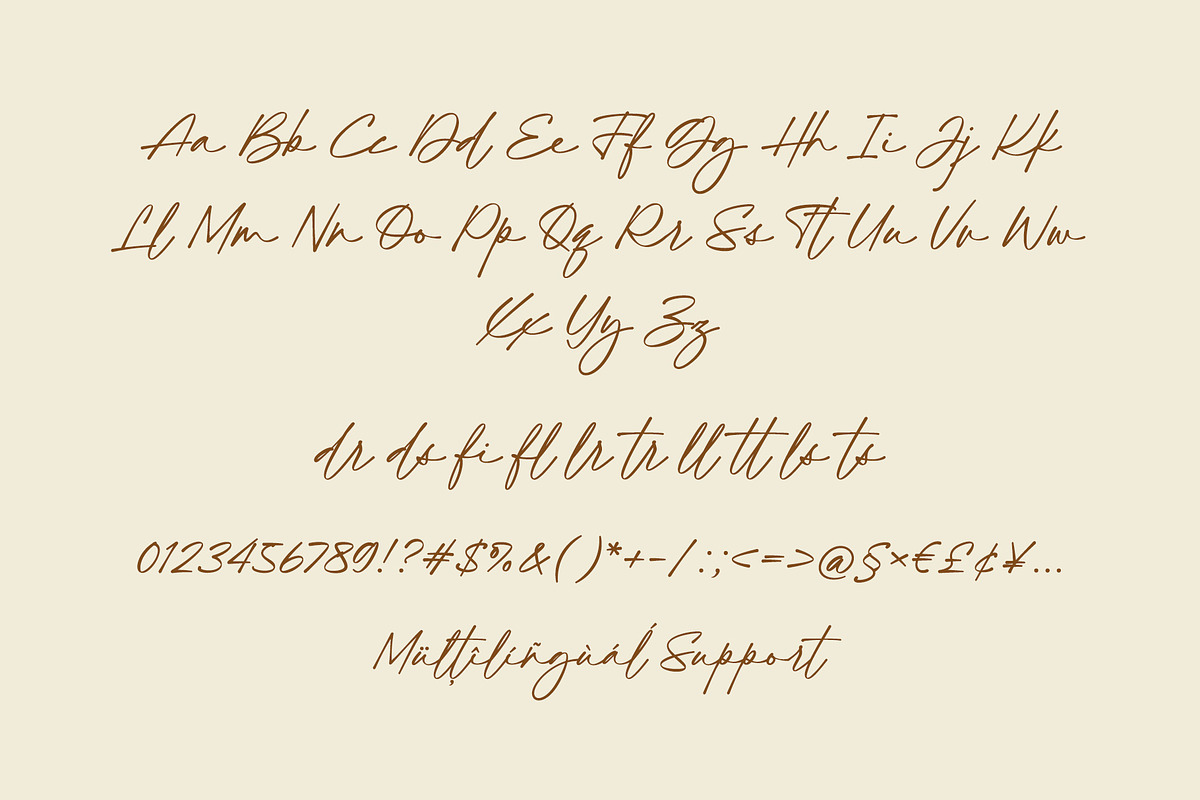 Aa Bb Cc Dd Ee Ff Gg Hh Ii Jj Kk
Ll Mm Nn Oo Pp Qq Rr Ss Tt Uu Vv Ww
Xx Yy Zz
dr ds fi fl lr tr ll tt ls ts
0123456789!?#$%&()*+-/:;<=>@§×€£¢¥...
Müļţîlíñgùáĺ Support